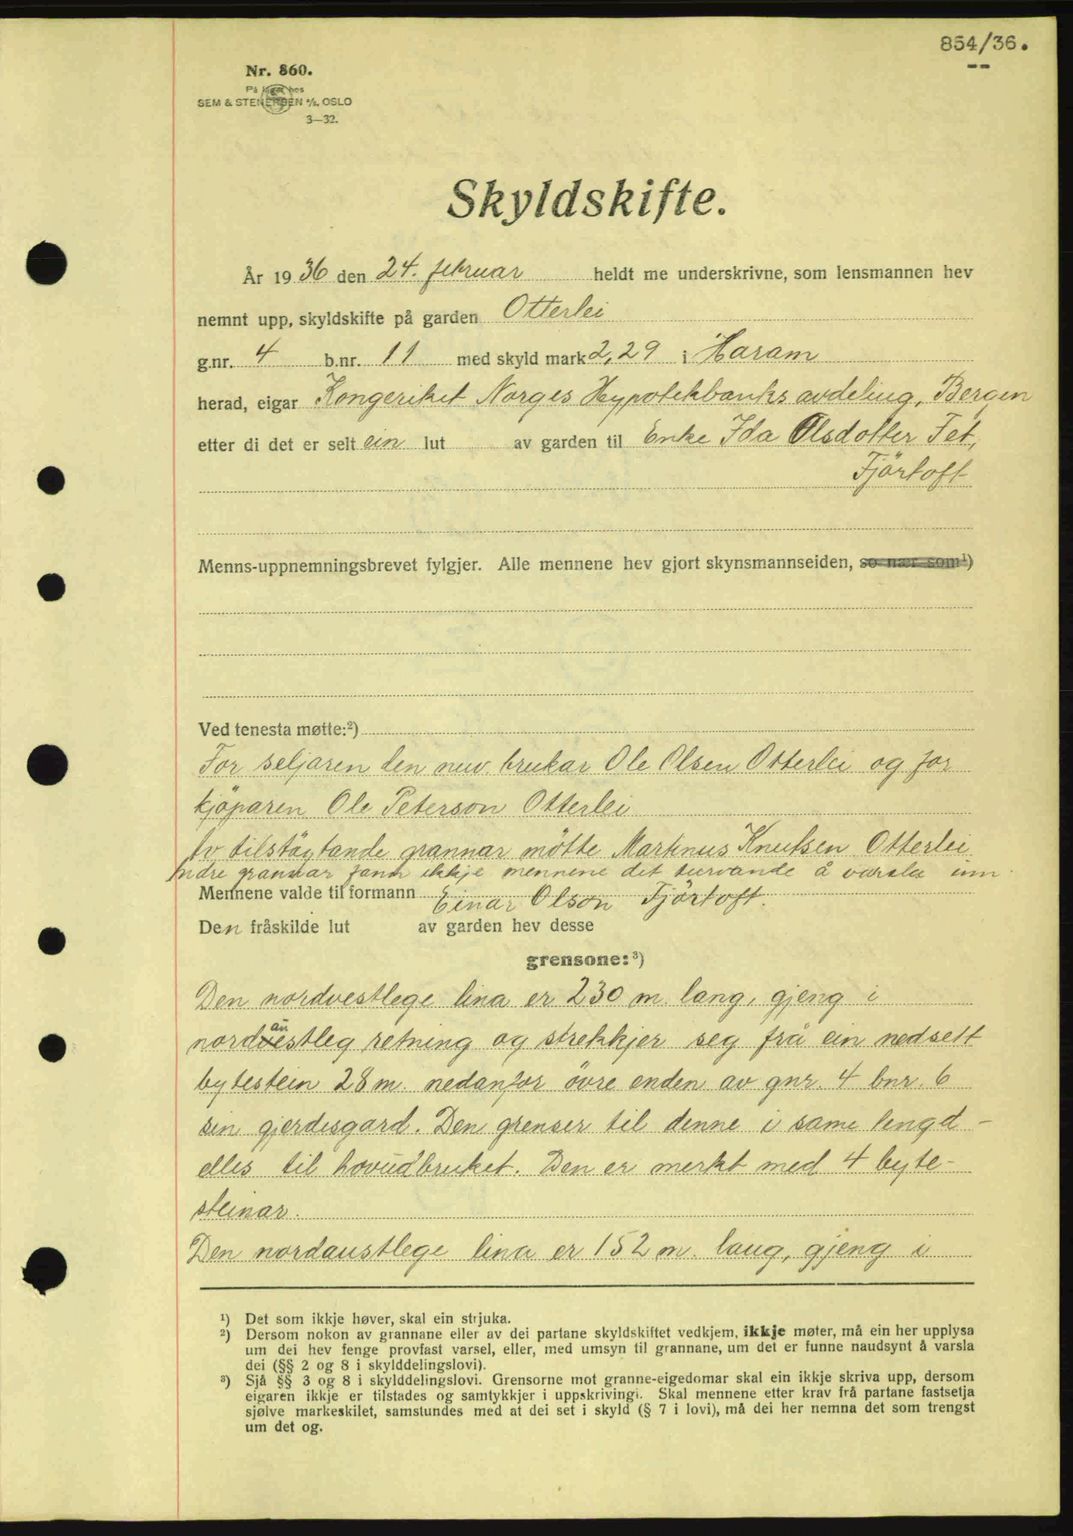 854/36.
Nr. 860.
På lager hos
SEM & STENERSEN A/S. OSLO
3—32.
Skyldskifte.
År 1936 den 24. februar heldt me underskrivne, som lensmannen hev
nemnt upp, skyldskifte på garden Otterlei
g.nr. 4 b.nr. 11 med skyld mark 2,29 i Haram
herad, eigar Kongeriket Norges Hypotekbanks avdeling, Bergen
etter di det er selt ein lut av garden til Enke Ida Olsdotter Fet,
Fjörtoft
Menns-uppnemningsbrevet fylgjer. Alle mennene hev gjort skynsmannseiden, so nær som¹)
Ved tenesta møtte:²)
For seljaren den nuv. brukar Ole Olsen Otterlei og for
kjöparen Ole Peterson Otterlei
Av tilstöytande grannar mötte Martinus Knutsen Otterlei
Andre grannar fann ikkje mennene det turvande å varsla inn.
Mennene valde til formann Einar Olson Fjörtoft.
Den fråskilde lut av garden hev desse
grensone:³)
Den nordvestlege lina er 230 m. lang, gjeng i
nordvestleg retning og strekkjer seg frå ein nedsett
bytestein 28 m. nedanfor övre enden av gnr. 4 bnr. 6
sin gjerdesgard. Den grenser til denne i same lengd -
elles til hovudbruket. Den er merkt med 4 byte-
steinar.
Den nordaustlege lina er 152 m. lang, gjeng i
¹) Det som ikkje høver, skal ein strjuka.
²) Dersom nokon av grannane eller av dei partane skyldskiftet vedkjem, ikkje møter, må ein her upplysa
um dei hev fenge provfast varsel, eller, med umsyn til grannane, um det er funne naudsynt å varsla
dei (§§ 2 og 8 i skylddelingslovi).
³) Sjå §§ 3 og 8 i skylddelingslovi. Grensorne mot granne-eigedomar skal ein ikkje skriva upp, dersom
eigaren ikkje er tilstades og samtykkjer i uppskrivingi. Skal mennene etter krav frå partane fastsetja
sjølve markeskilet, samstundes med at dei set i skyld (§ 7 i lovi), må dei her nemna det som trengst
um det og.